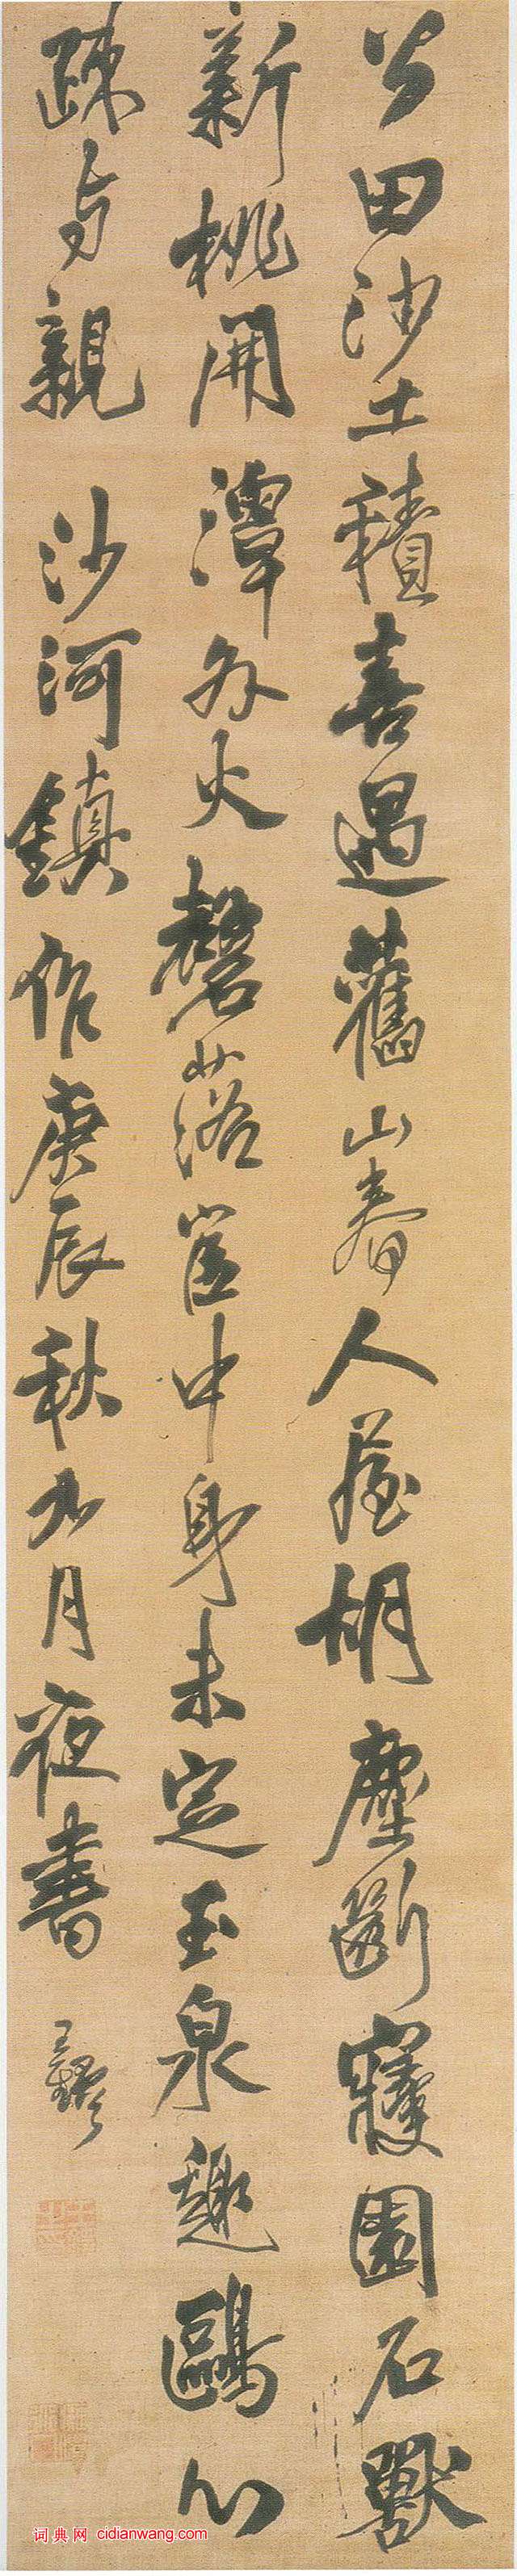 公田沙土積喜遇舊山春人屋胡塵斷寢園石獸
新桃開潭外火磬落崖中身未定玉泉趣鷗心
疎与親 沙河鎮作庚辰秋九月夜書 王鐸
词典网 cidianwang.com